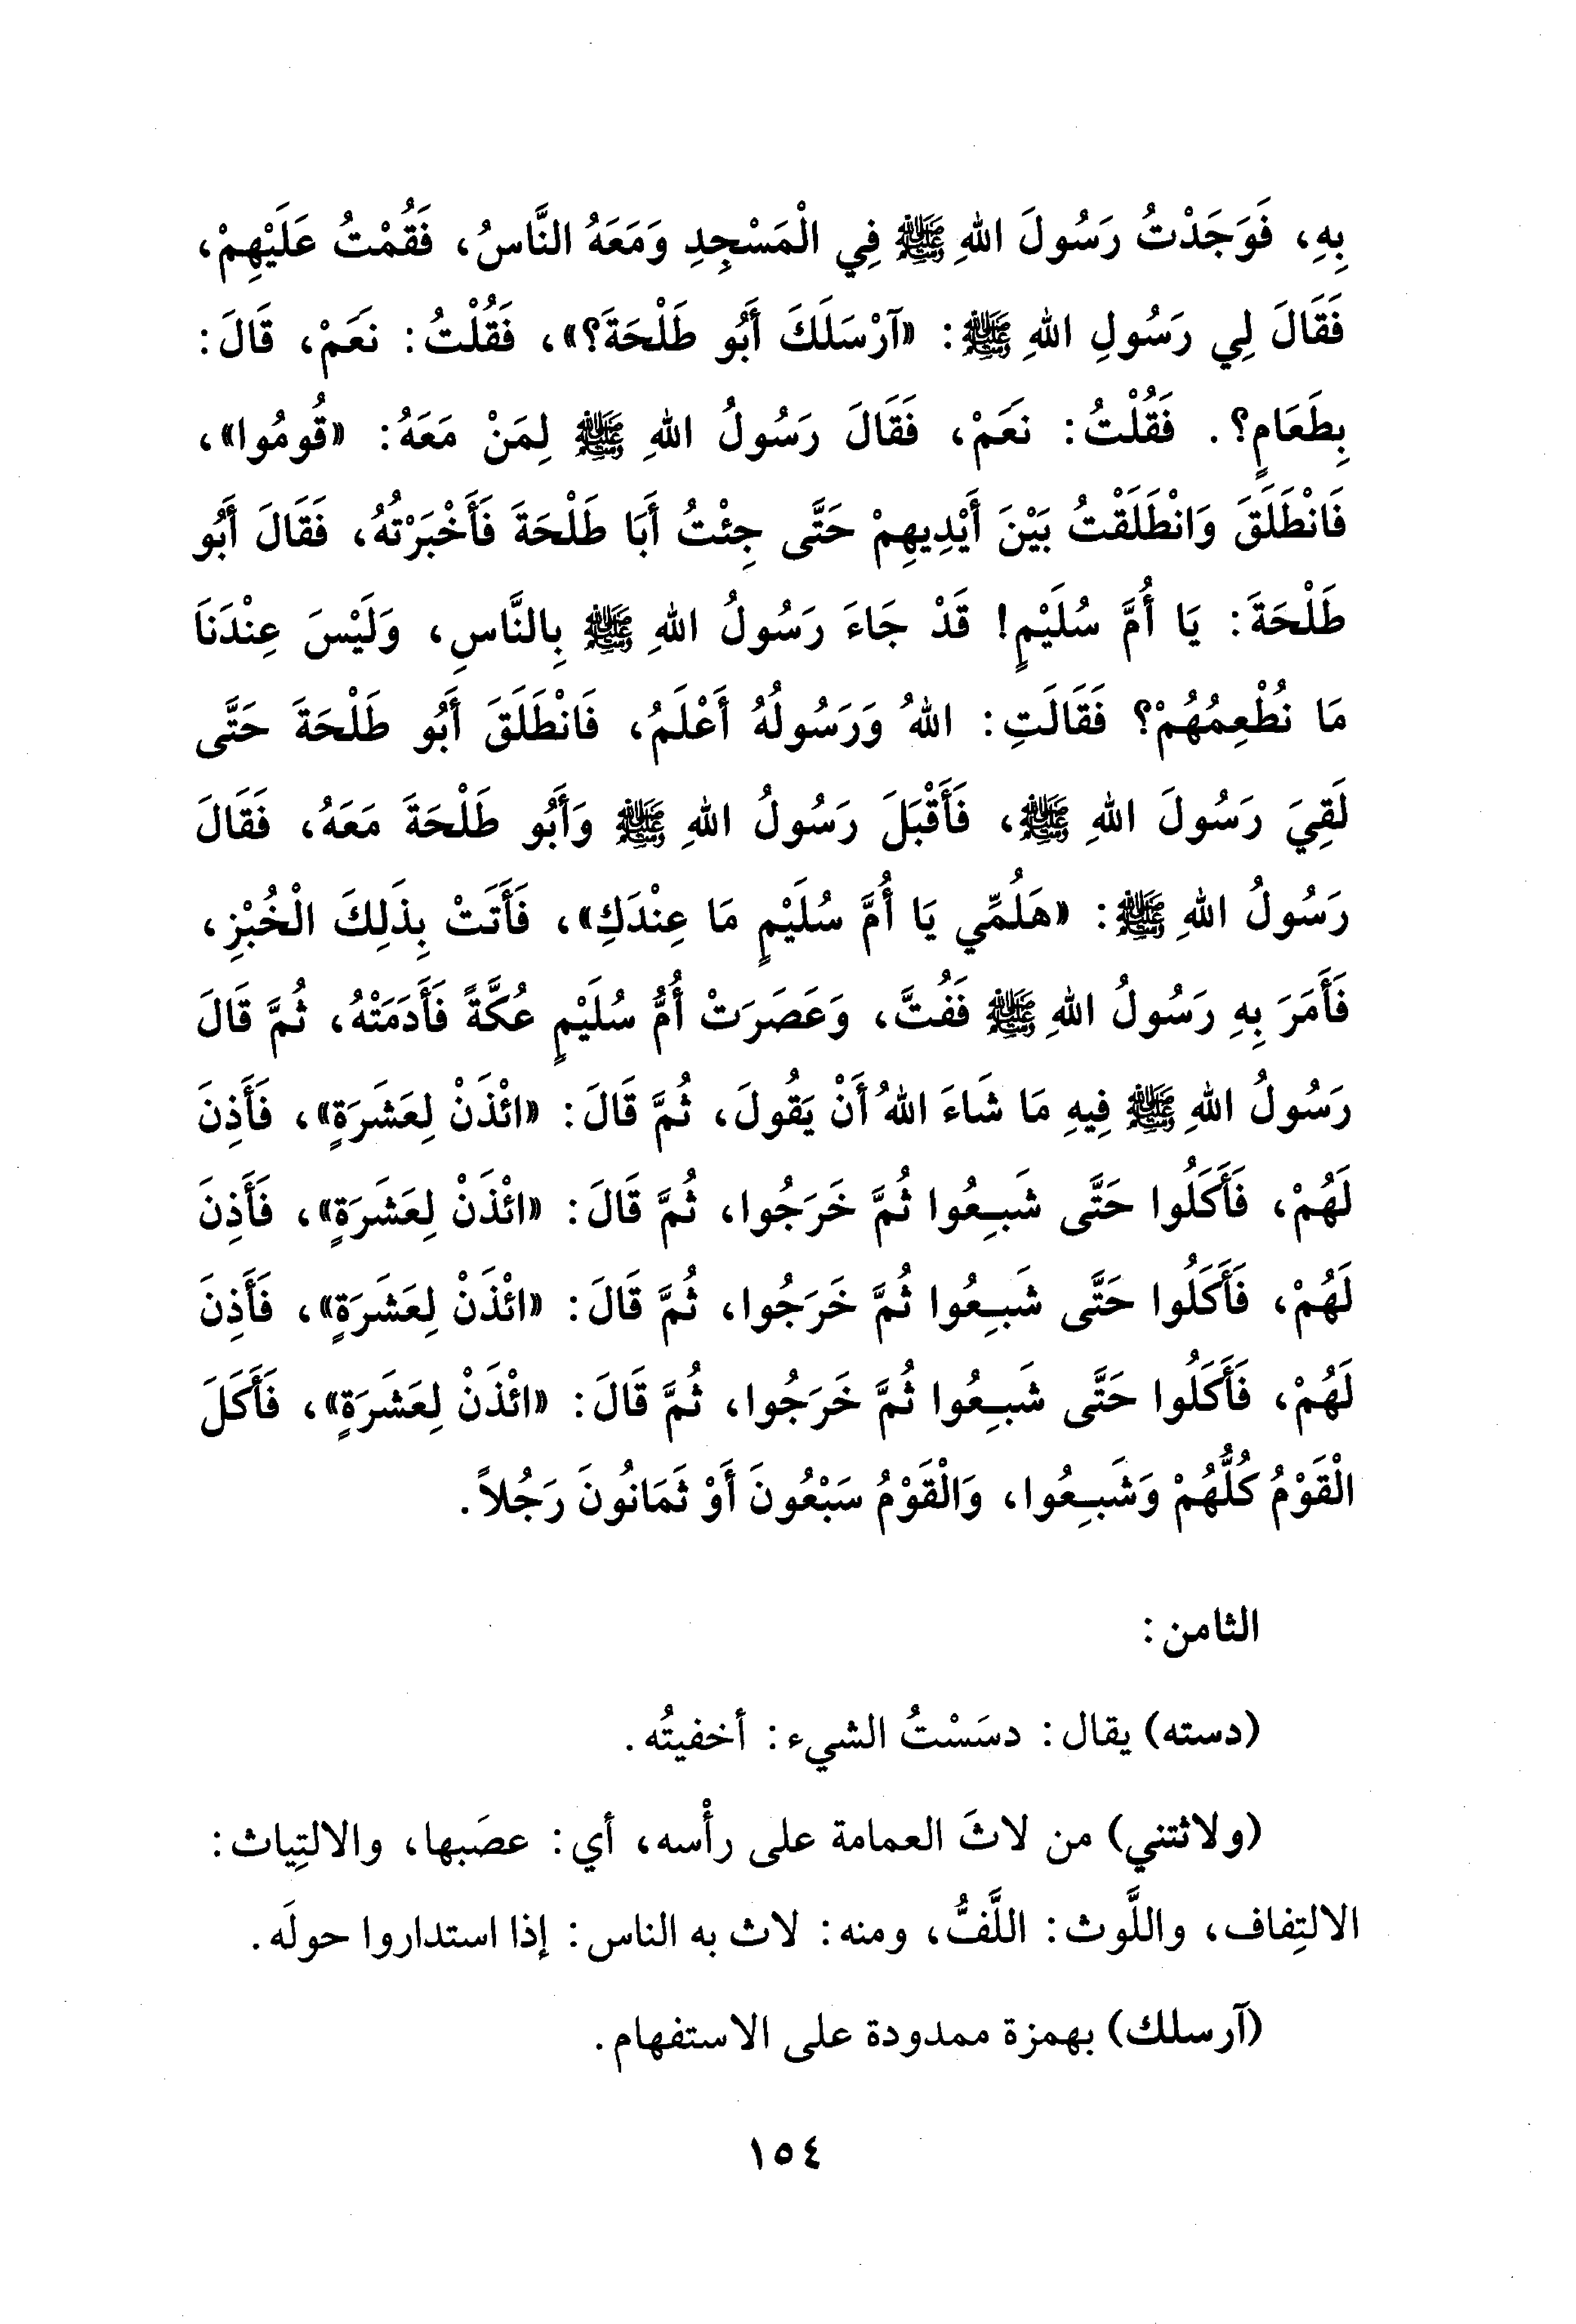 بِهِ، فَوَجَدْتُ رَسُولَ اللهِ ﷺ فِي الْمَسْجِدِ وَمَعَهُ النَّاسُ، فَقُمْتُ عَلَيْهِمْ،
فَقَالَ لِي رَسُولِ اللهِ ﷺ: «آرْسَلَكَ أَبُو طَلْحَةَ؟»، فَقُلْتُ: نَعَمْ، قَالَ:
بِطَعَامٍ؟. فَقُلْتُ: نَعَمْ، فَقَالَ رَسُولُ اللهِ ﷺ لِمَنْ مَعَهُ: «قُومُوا»،
فَانْطَلَقَ وَانْطَلَقْتُ بَيْنَ أَيْدِيهِمْ حَتَّى جِئْتُ أَبَا طَلْحَةَ فَأَخْبَرْتُهُ، فَقَالَ أَبُو
طَلْحَةَ: يَا أُمَّ سُلَيْمٍ! قَدْ جَاءَ رَسُولُ اللهِ ﷺ بِالنَّاسِ، وَلَيْسَ عِنْدَنَا
مَا نُطْعِمُهُمْ؟ فَقَالَتِ: اللهُ وَرَسُولُهُ أَعْلَمُ، فَانْطَلَقَ أَبُو طَلْحَةَ حَتَّى
لَقِيَ رَسُولَ اللهِ ﷺ، فَأَقْبَلَ رَسُولُ اللهِ ﷺ وَأَبُو طَلْحَةَ مَعَهُ، فَقَالَ
رَسُولُ اللهِ ﷺ: «هَلُمِّي يَا أُمَّ سُلَيْمٍ مَا عِنْدَكِ»، فَأَتَتْ بِذَلِكَ الْخُبْزِ،
فَأَمَرَ بِهِ رَسُولُ اللهِ ﷺ فَفُتَّ، وَعَصَرَتْ أُمُّ سُلَيْمٍ عُكَّةً فَأَدَمَتْهُ، ثُمَّ قَالَ
رَسُولُ اللهِ ﷺ فِيهِ مَا شَاءَ اللهُ أَنْ يَقُولَ، ثُمَّ قَالَ: «ائْذَنْ لِعَشَرَةٍ»، فَأَذِنَ
لَهُمْ، فَأَكَلُوا حَتَّى شَبِعُوا ثُمَّ خَرَجُوا، ثُمَّ قَالَ: «ائْذَنْ لِعَشَرَةٍ»، فَأَذِنَ
لَهُمْ، فَأَكَلُوا حَتَّى شَبِعُوا ثُمَّ خَرَجُوا، ثُمَّ قَالَ: «ائْذَنْ لِعَشَرَةٍ»، فَأَذِنَ
لَهُمْ، فَأَكَلُوا حَتَّى شَبِعُوا ثُمَّ خَرَجُوا، ثُمَّ قَالَ: «ائْذَنْ لِعَشَرَةٍ»، فَأَكَلَ
الْقَوْمُ كُلُّهُمْ وَشَبِعُوا، وَالْقَوْمُ سَبْعُونَ أَوْ ثَمَانُونَ رَجُلاً.
الثامن:
(دسته) يقال: دسَسْتُ الشيء: أخفيتُه.
(ولاثتني) من لاثَ العمامة على رأْسه، أي: عصَبها، والالتِياث:
الالتِفاف، واللَّوث: اللَّفُّ، ومنه: لاث به الناس: إذا استداروا حولَه.
(آرسلك) بهمزة ممدودة على الاستفهام.
١٥٤